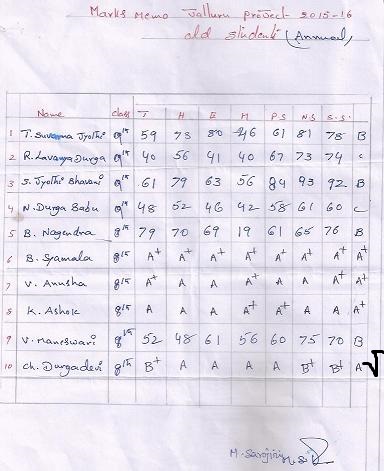 Marks Memo Valluru project 2015-16
old students (Annual)
Name class T H E M P.S N.S S.S.
1 T. Suvarna Jyothi 9th 59 73 80 46 61 81 78 B
2 R. Lavanya Durga 9th 40 56 41 40 67 73 74 C
3 S. Jyothi Bhavani 9th 61 79 63 56 84 93 92 B
4 N. Durga Babu 9th 48 52 46 42 58 61 60 C
5 B. Nagendra 8th 79 70 69 19 61 65 76 B
6 B. Syamala 8th A+ A+ A+ A+ A+ A+ A+ A+
7 V. Anusha 8th A+ A A A+ A A A+ A+
8 K. Ashok 8th A A A A+ A+ A A A+
9 V. Maneswari 9th 52 48 61 56 60 75 70 B
10 Ch. Durgadevi 8th B+ A A A A B+ B+ A √
M. Sarojini